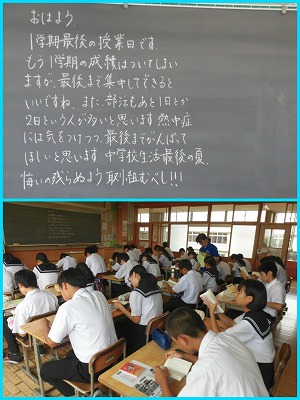 おはよう。
1学期最後の授業日です。
もう1学期の成績はついてしまい
ますが、最後まで集中してできると
いいですね。また、部活もあと1日とか
2日という人が多いと思います。熱中症
には気をつけつつ、最後までがんばって
ほしいと思います。中学校生活最後の夏、
悔いの残らぬよう取り組むべし!!!